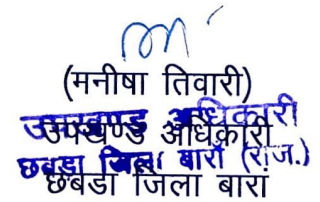 (मनीषा तिवारी)
उपखण्ड अधिकारी
उपखण्ड अधिकारी
छबडा जिला बारां (राज.)
छबडा जिला बारां